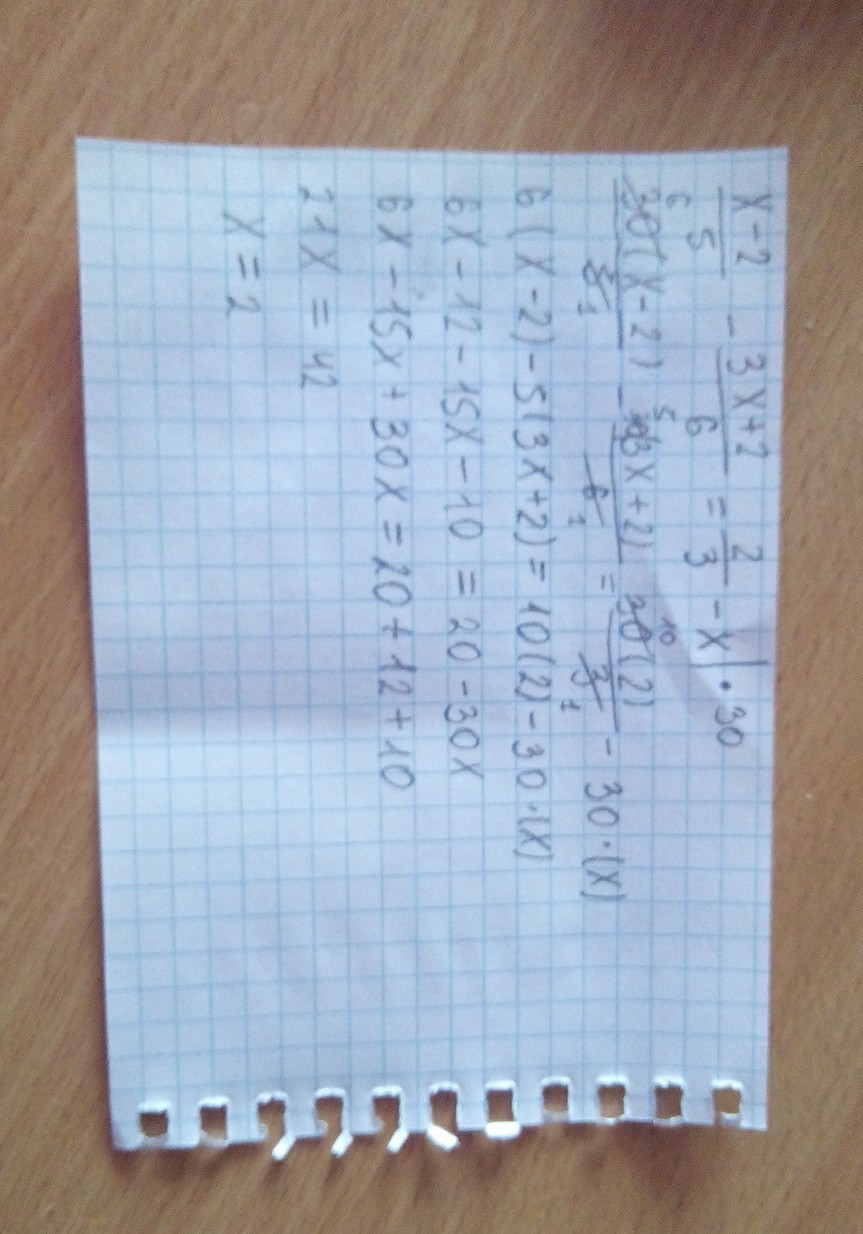 x-2/5 - 3x+2/6 = 2/3 - x | · 30
6 30(x-2)/5 1 - 5 30(3x+2)/6 1 = 10 30(2)/3 1 - 30·(x)
6(x-2)-5(3x+2)=10(2)-30·(x)
6x-12-15x-10=20-30x
6x-15x+30x=20+12+10
21x=42
x=2